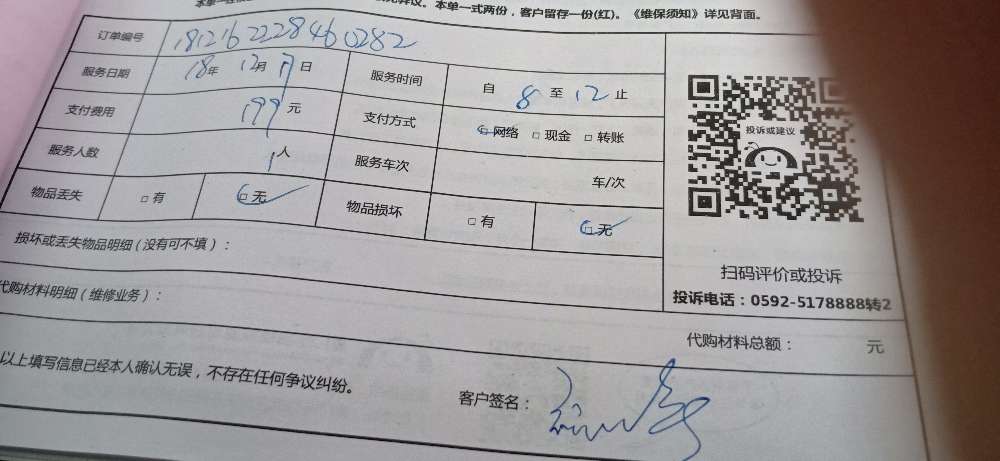 本单一式两份，客户留存一份(红)。《维保须知》详见背面。
订单编号 1812162228460282
服务日期 18年 12月 17日 服务时间 自 8 至 12 止
支付费用 199 元 支付方式 □网络 □现金 □转账
服务人数 1人 服务车次 车/次
物品丢失 □有 □无 物品损坏 □有 □无
损坏或丢失物品明细（没有可不填）：
代购材料明细（维修业务）：
投诉或建议
扫码评价或投诉
投诉电话：0592-5178888转2
代购材料总额： 元
以上填写信息已经本人确认无误，不存在任何争议纠纷。
客户签名：